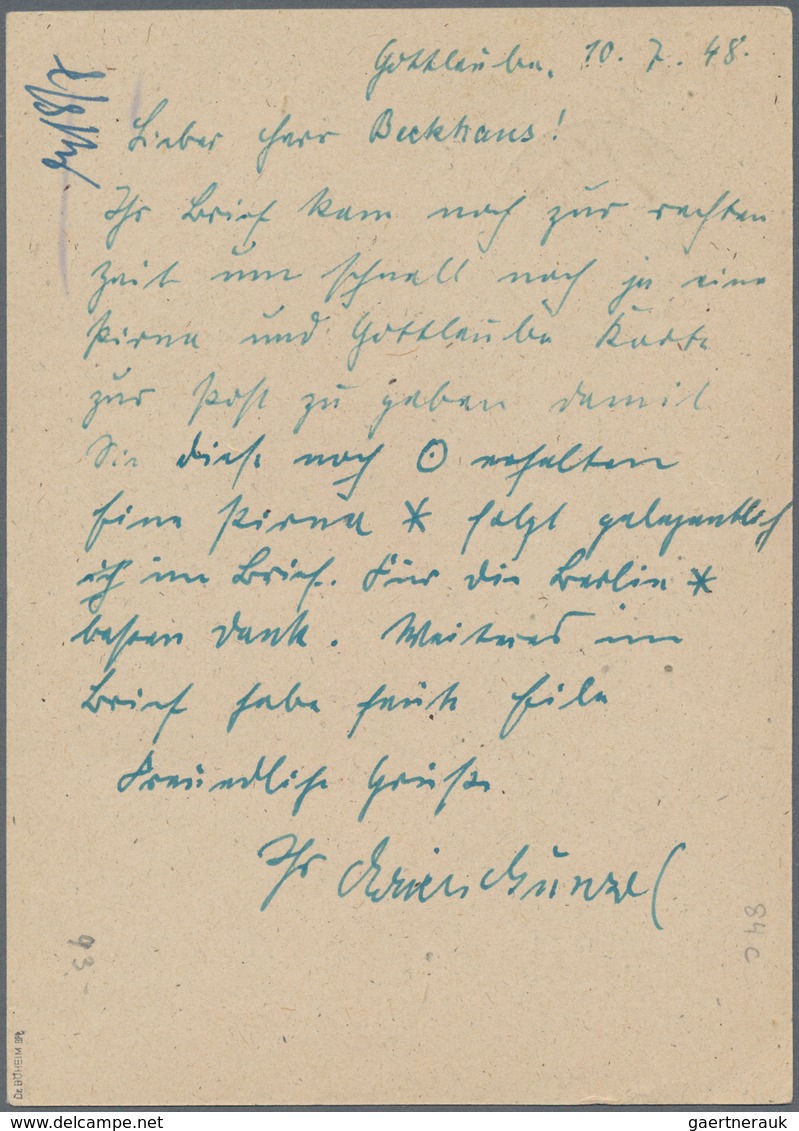 Gottleuba, 10. 7. 48.
Lieber Herr Beckhaus!
Ihr Brief kam noch zur rechten
Zeit um schnell noch je eine
Pirna und Gottleuba Karte
zur Post zu geben damit
Sie diese noch ⊙ erhalten
Eine Pirna * folgt gelegentlich
im Brief. Für die Berlin *
besten Dank. Weiteres im
Brief habe heute Eile
Freundliche Grüße
Ihr
84 c
93.-
Dr. BÖHEIM BPP
www.delcampe.net
gaertnerauk